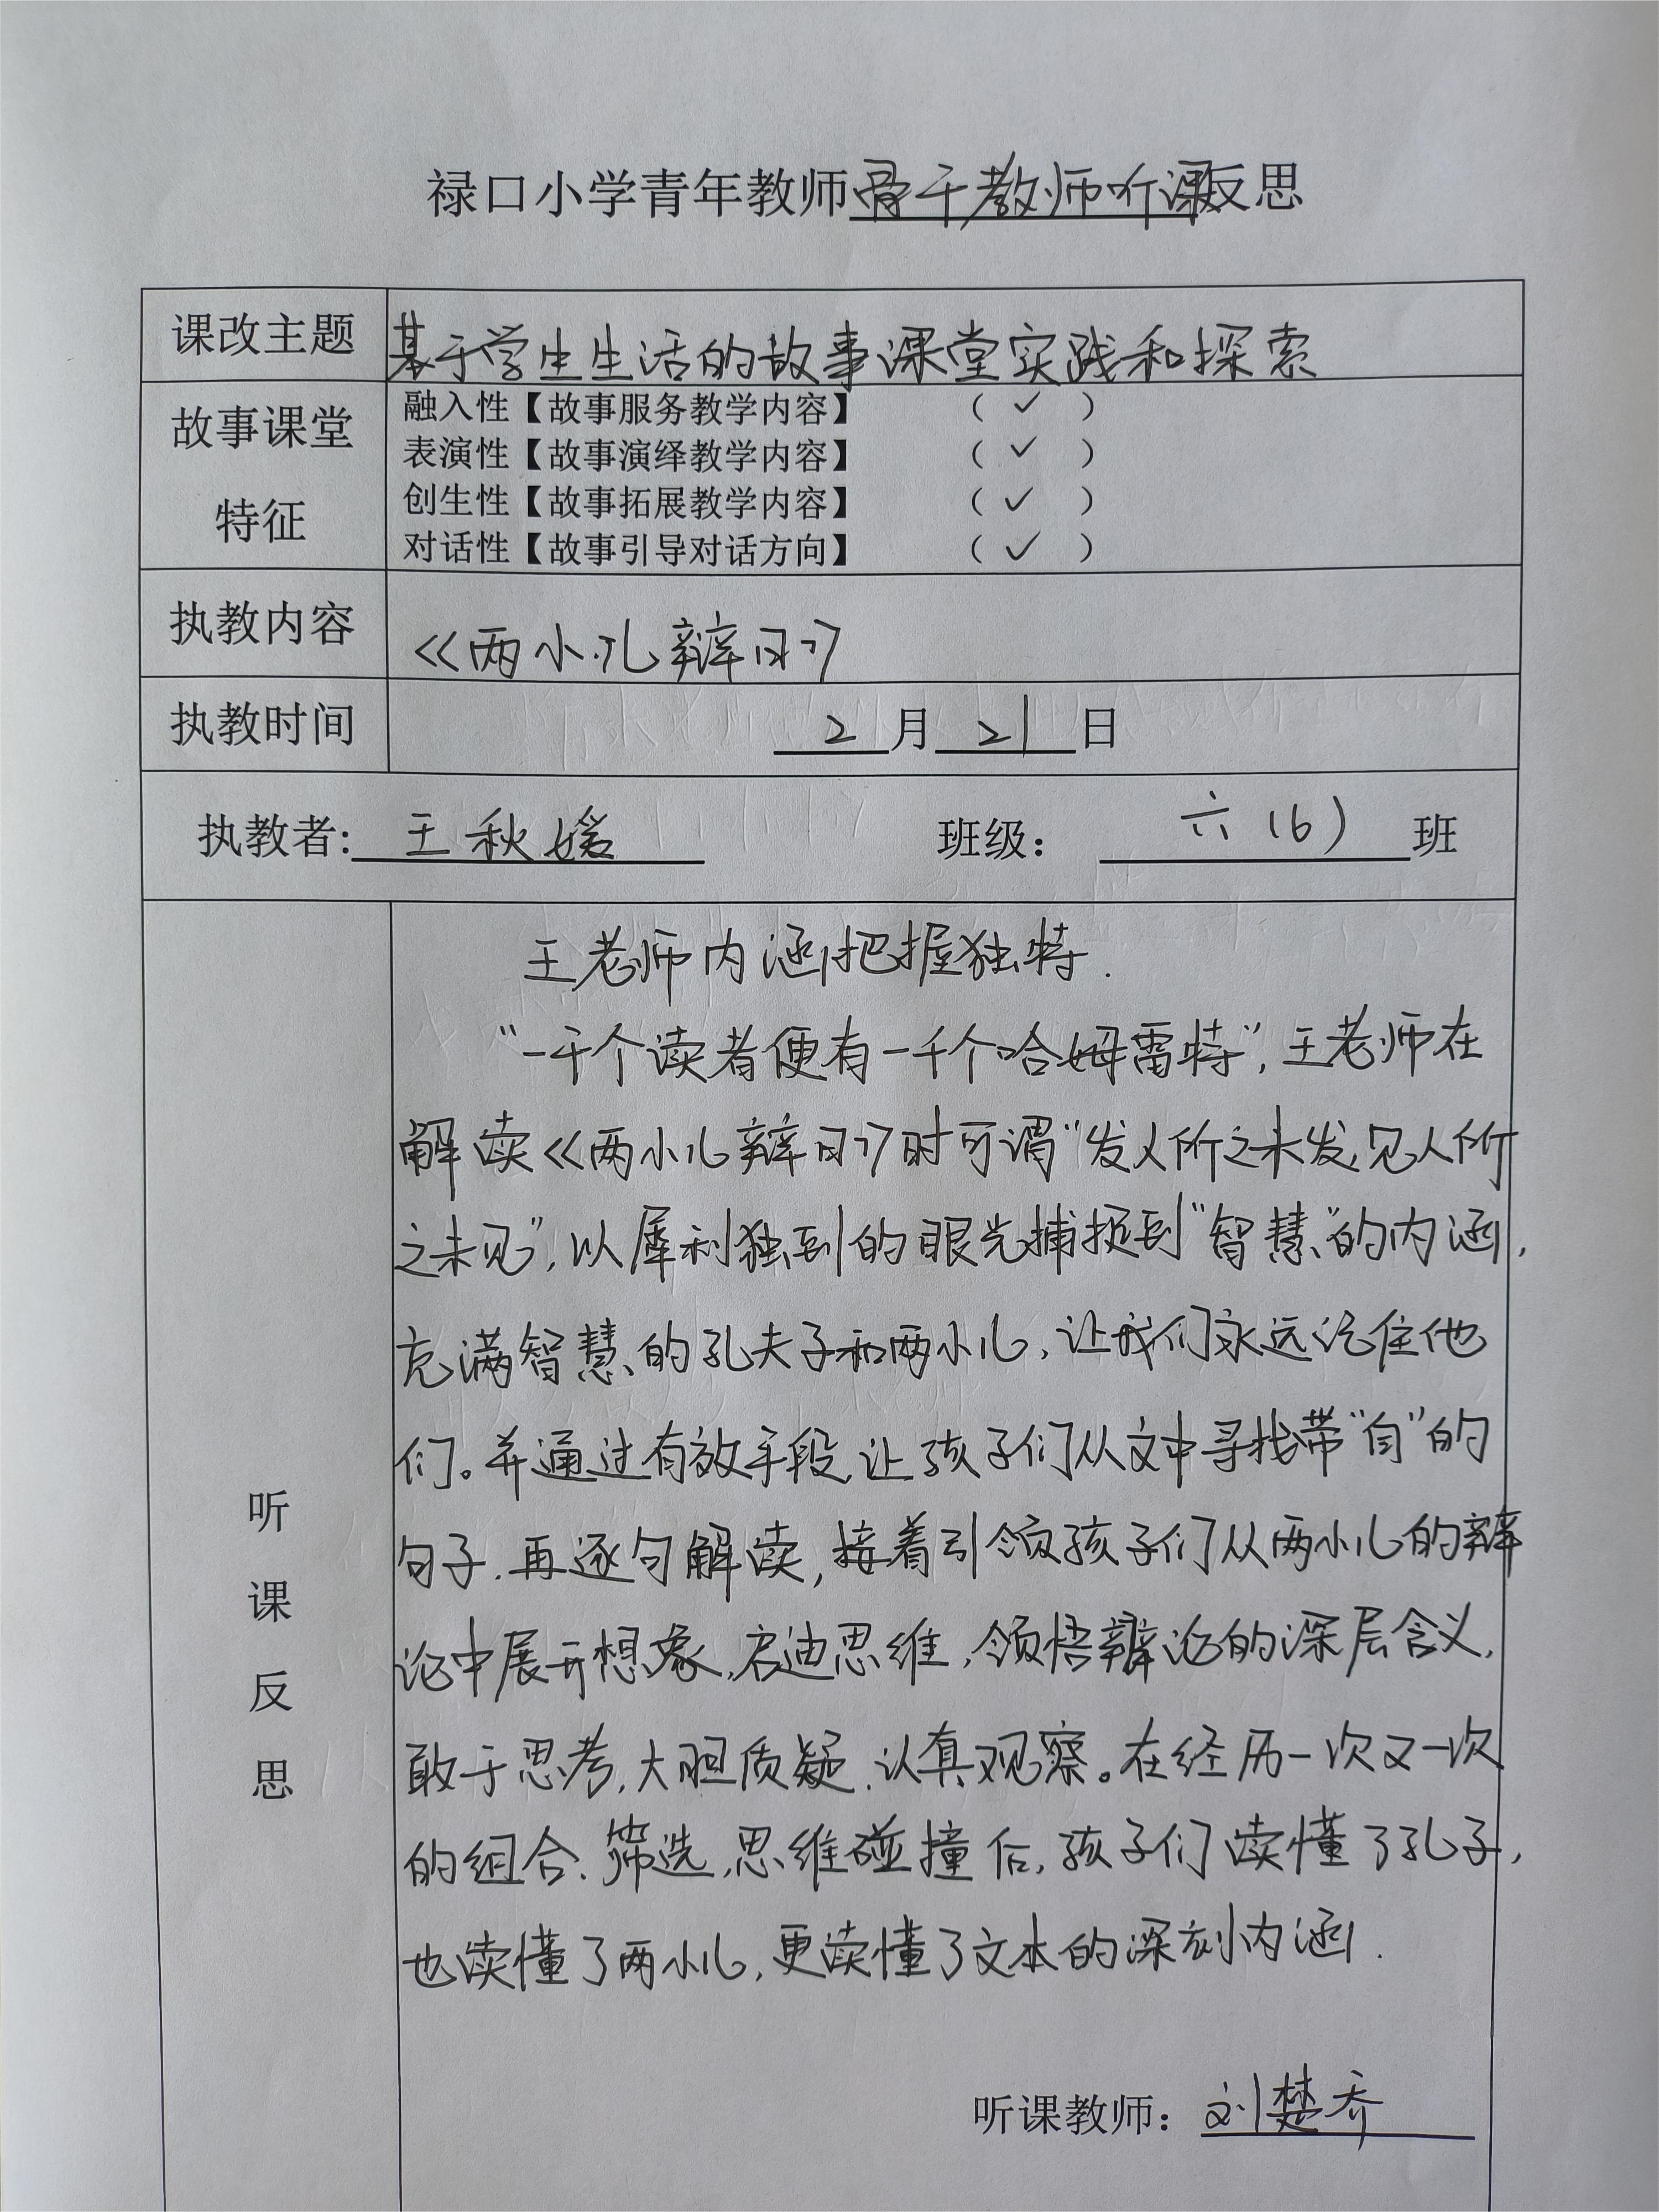 禄口小学青年教师骨干教师听课反思
课改主题 基于学生生活的故事课堂实践和探索
故事课堂特征
融入性【故事服务教学内容】 （ ✓ ）
表演性【故事演绎教学内容】 （ ✓ ）
创生性【故事拓展教学内容】 （ ✓ ）
对话性【故事引导对话方向】 （ ✓ ）
执教内容 《两小儿辩日》
执教时间 2月21日
执教者：王秋媛 班级：六（6）班
听课反思
王老师内涵把握独特.
“一千个读者便有一千个哈姆雷特”，王老师在
解读《两小儿辩日》时可谓“发人所之未发，见人所
之未见”，以犀利独到的眼光捕捉到“智慧”的内涵，
充满智慧的孔夫子和两小儿，让我们永远记住他
们。并通过有效手段，让孩子们从文中寻找带“自”的
句子，再逐句解读，接着引领孩子们从两小儿的辩
论中展开想象，启迪思维，领悟辩论的深层含义，
敢于思考，大胆质疑，认真观察。在经历一次又一次
的组合、筛选，思维碰撞后，孩子们读懂了孔子，
也读懂了两小儿，更读懂了文本的深刻内涵.
听课教师：刘楚乔